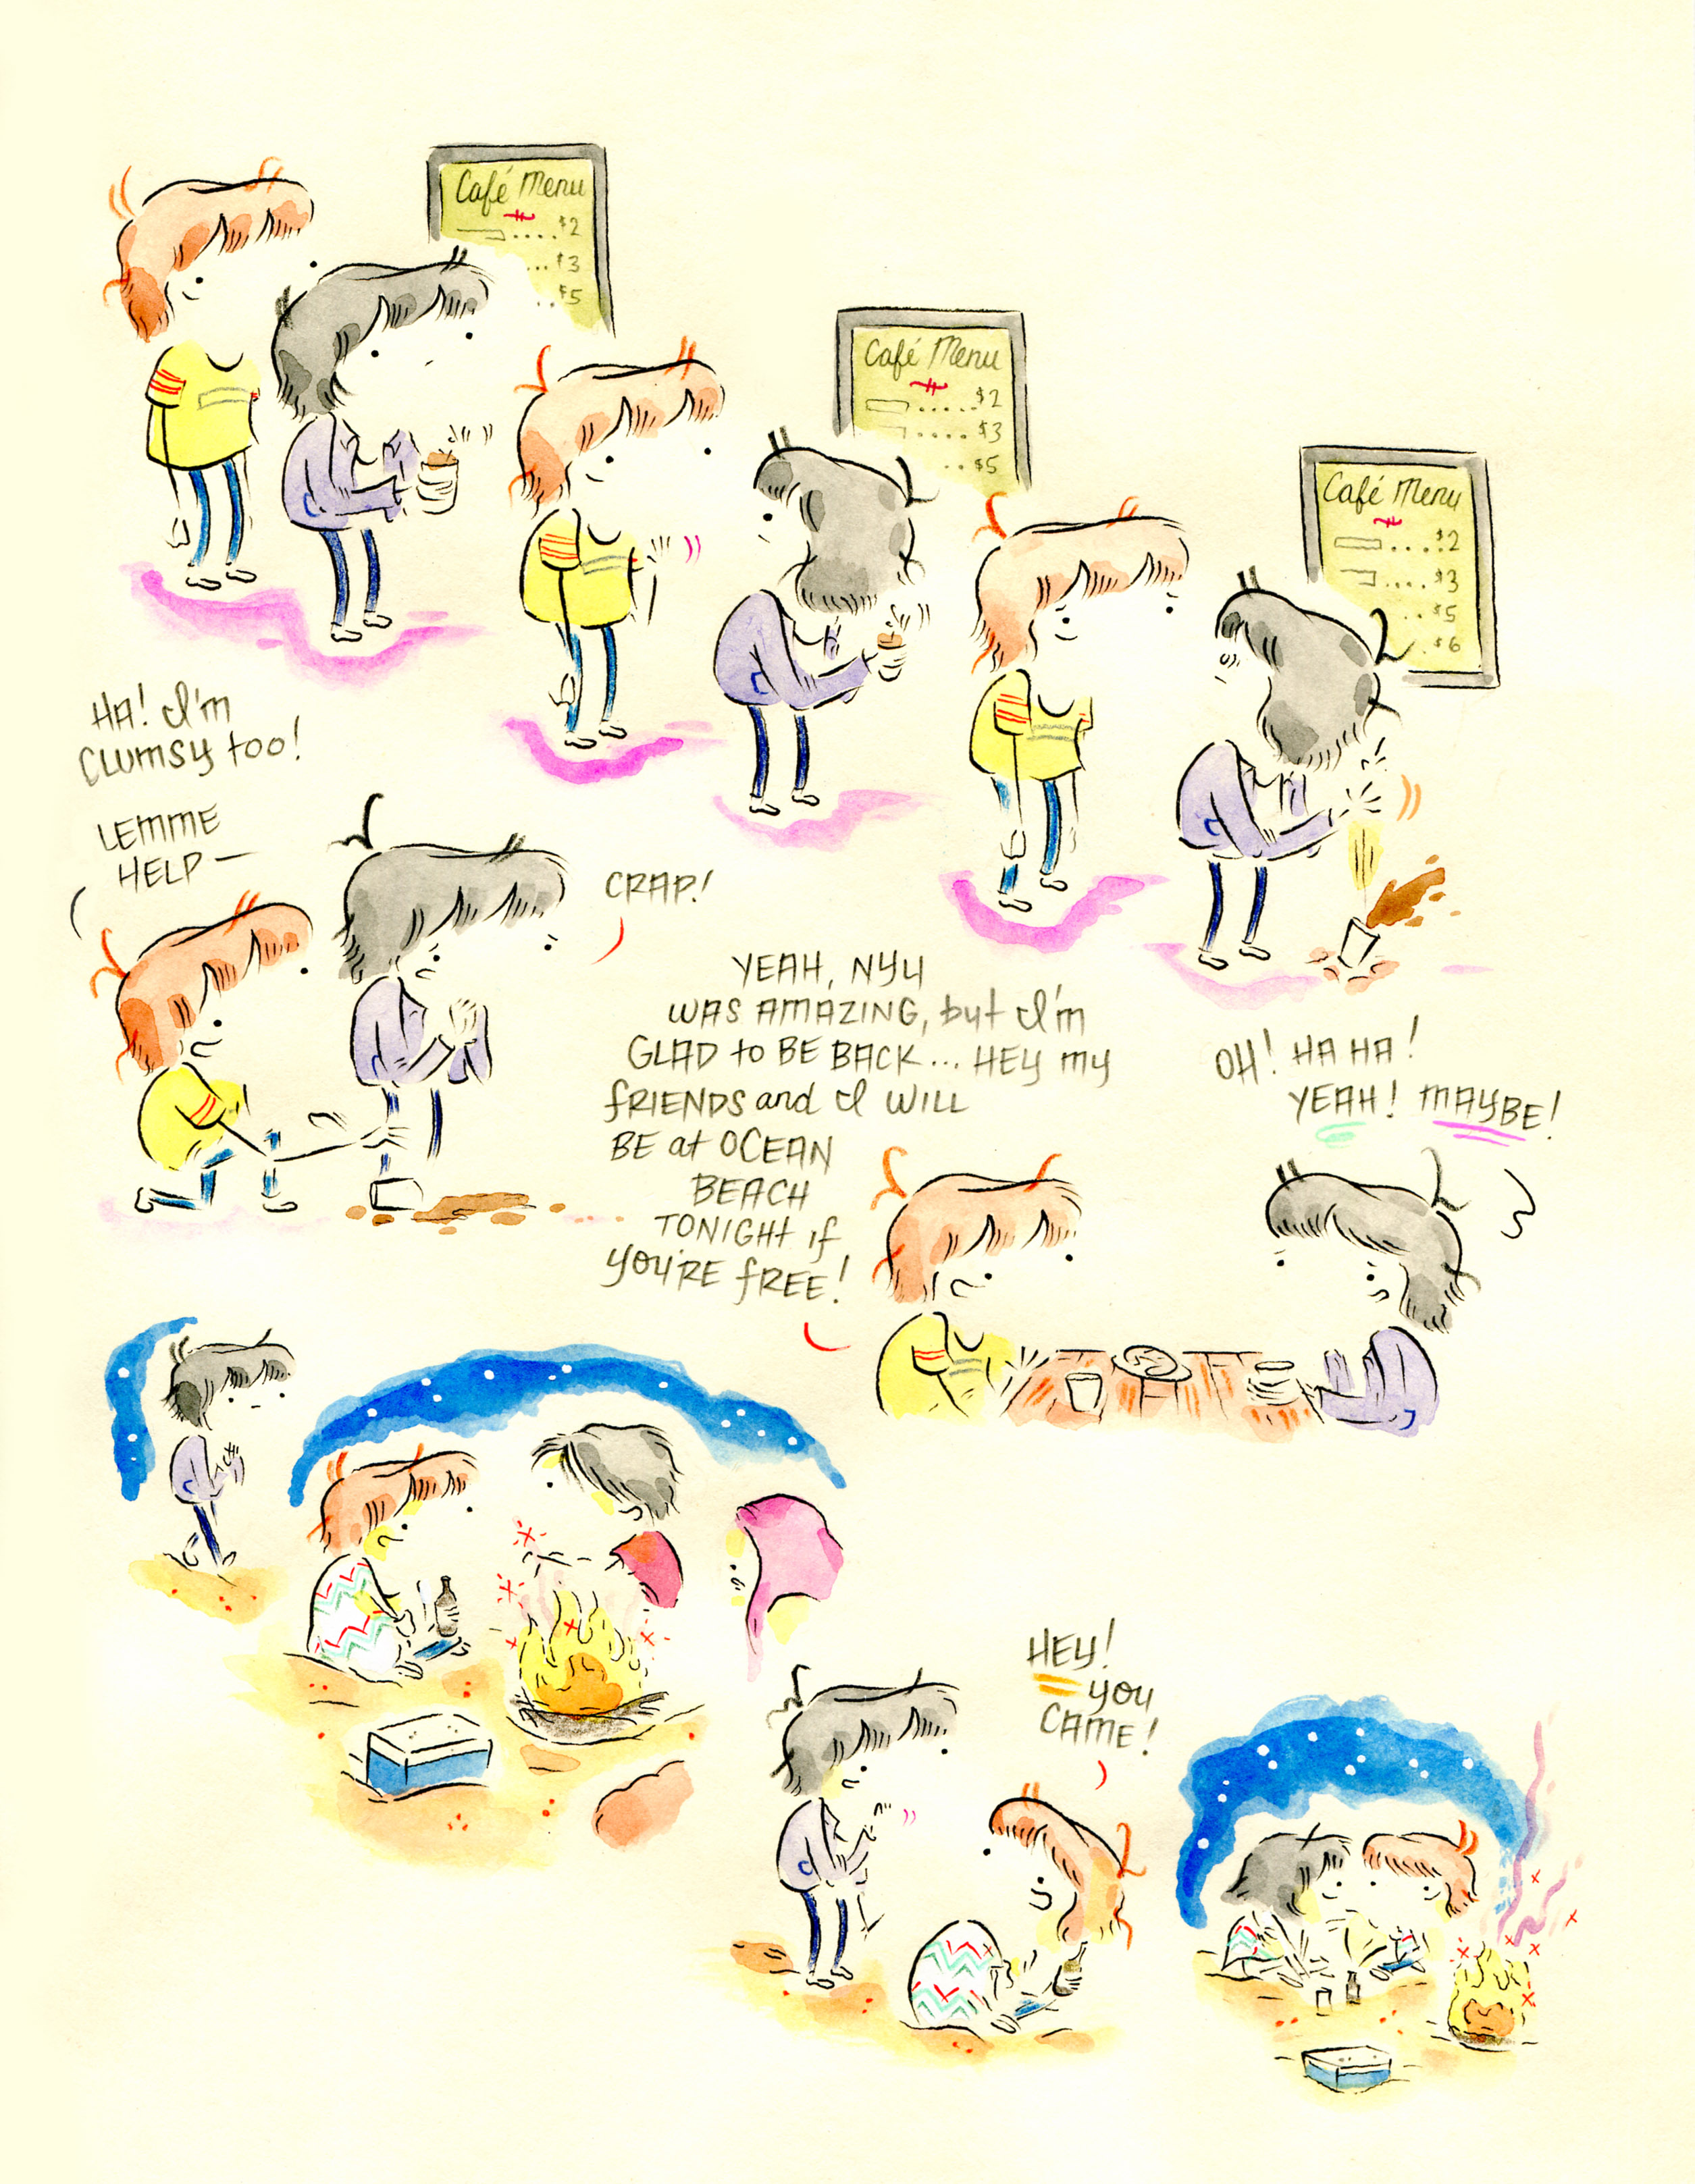 Café Menu
....$2
...$3
..$5
Café Menu
.....$2
....$3
..$5
Café Menu
....$2
....$3
..$5
.$6
HA! I'm
CLUMSY too!
LEMME
HELP—
CRAP!
YEAH, NYU
WAS AMAZING, but I'm
GLAD to BE BACK... HEY my
fRIENDS and I WILL
BE at OCEAN
BEACH
TONIGHt if
YOU'RE fREE!
OH! HA HA!
YEAH! MAYBE!
HEY!
you
CAME!